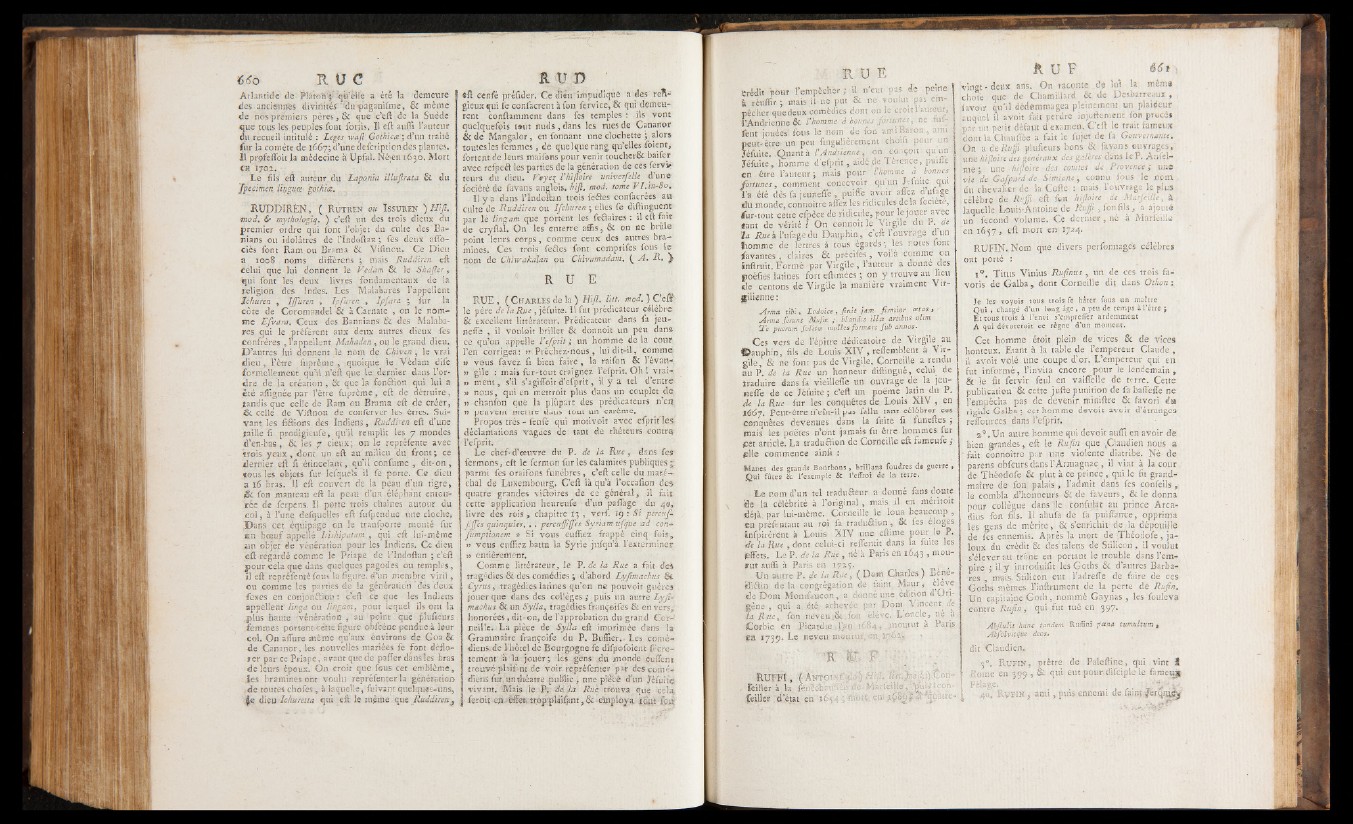 660 RUC
Atlantide de Platon ; qu'elle a été la demeure
des anciennes divinités du paganisme, & même
de nos premiers pères, & que c'est de la Suède
que tous les peuples sont sortis. Il est aussi l'auteur
du recueil intitulé : Leges west Gothicæ ; d'un traité
sur la comète de 1667; d'une description des plantes.
Il professoit la médecine à Upsal. Né en 1630. Mort
en 1702.
Le fils est auteur du Laponia illustrata & du
specimen linguæ gothicæ.
RUDDIREN, ( RUTREN ou ISSUREN ) Hist.
mod. & mythologiq. ) c'est un des trois dieux du
premier ordre qui font l'objet du culte des Ba-
nians ou idolâtres de l'Indostan ; ses deux asso-
ciés sont Ram ou Brama & Vistnou. Ce Dieu
a 1008 noms différens ; mais Ruddiren est
celui que lui donnent le Vedam & le Shaster,
qui sont les deux livres fondamentaux de la
religion des Indes. Les Malabares l'appellent
Ichuren , Issuren , Ipsuren , Ipsara ; sur la
côte de Coromandel & à Carnate , on le nom-
me Esvara. Ceux des Bannians & des Malaba-
res qui le préfèrent aux deux autres dieux ses
confrères , l'appellent Mahadeu, ou le grand dieu.
D'autres lui donnent le nom de Chiven, le vrai
dieu , l'être suprême , quoique le Védam dise
formellement qu'il n'est que le dernier dans l'or-
dre de la création , & que la fonction qui lui a
été assignée par l'être suprême , est de détruire ,
tandis que celle de Ram ou Brama est de créer,
& celle de Vistnou de conserver les êtres. Sui-
vant les fictions des Indiens , Ruddiren est d'une
taille si prodigieuse, qu'il remplit les 7 mondes
d'en-bas, & les 7 cieux; on le représente avec
trois yeux, dont un est au milieu du front; ce
dernier est si étincelant, qu'il consume , dit-on ,
tous les objets sur lesquels il se porte. Ce dieu
a 16 bras. Il est couvert de la peau d'un tigre,
& son manteau est la peau d'un éléphant entou-
rée de serpens. Il porte trois chaînes autour du
col, à l'une desquelles est suspendue une cloche.
Dans cet équipage on le transporte monté sur
un bœuf appellé Irishipatan , qui est lui-même
un objet de vénération pour les Indiens. Ce dieu
est regardé comme le Priape de l'Indostan ; c'est
pour cela que dans quelques pagodes ou temples ,
il est représenté sous la figure d'un membre viril,
ou comme les parties de la génération des deux
sexes en conjonction : c'est ce que les Indiens
appellent linga ou lingam, pour lequel ils ont la
plus haute vénération , au point que plusieurs
femmes portent cette figure obscène pendue à leur
col. On assure même qu'aux environs de Goa &
de Cananor, les nouvelles mariées se font déflo-
rer par ce Priape, avant que de passer dans les bras
de leurs époux. On croit que sous cet emblême,
les bramines ont voulu représenter la génération
de toutes choses, à laquelle, suivant quelques-uns,
le dieu Ichuretta qui est le même que Ruddiren,
RUD
est censé présider. Ce dieu impudique a des reli-
gieux qui se consacrent à son service, & qui demeu-
rent constamment dans ses temples : ils vont
quelquefois tout nuds, dans les rues de Cananor
& de Mangalor , en sonnant une clochette ; alors
toutes les femmes, de quelque rang qu'elles soient,
sortent de leurs maisons pour venir toucher & baiser
avec respect les parties de la génération de ces servi-
teurs du dieu. Voyez l'histoire universelle d'une
société de savans anglois. hist. mod. tome VI. in-8o.
Il y a dans l'Indostan trois sectes consacrées au
culte de Ruddiren ou Ischuren ; elles se distinguent
par le lingum que portent les sectaires : il est fait
de crystal. On les enterre assis, & on ne brûle
point leurs corps, comme ceux des autres bra-
mines. Ces trois sectes sont comprises sous le
nom de Chivakalan ou Chivamadam. ( A. R. )
RUE
RUE , ( CHARLES de la ) Hist. litt. mod. ) C'est
le père de la Rue, jésuite. Il fut prédicateur célèbre
& excellent littérateur. Prédicateur dans sa jeu-
nesse , il vouloit briller & donnoit un peu dans
ce qu'on appelle l'esprit ; un homme de la cour
l'en corrigea: » Prêchez-nous, lui dit-il, comme
» vous savez si bien faire, la raison & l'évan-
» gile : mais sur-tout craignez l'esprit. Oh ! vrai-
» ment, s'il s'agissoit d'esprit, il y a tel d'entre
» nous, qui en mettroit plus dans un couplet de
» chanson que la plûpart des prédicateurs n'en
» peuvent mettre dans tout un carême.
Propos très-sensé qui motivoit avec esprit les
déclamations vagues de tant de rhéteurs contre
l'esprit.
Le chef-d'œuvre du P. de la Rue, dans ses
sermons, est le sermon sur les calamités publiques ;
parmi ses oraisons funèbres, c'est celle du maré-
chal de Luxembourg. C'est là qu'à l'occasion des
quatre grandes victoires de ce général, il fait
cette application heureuse d'un passage du 4e.
livre des rois, chapitre 13 , vers. 19 : Si percus-
sisses quinquies. . . percussisses Syriam usque ad con-
sumptionem » Si vous eussiez frappé cinq fois,
» vous eussiez battu la Syrie jusqu'à l'exterminer
» entièrement.
Comme littérateur, le P. de la Rue a fait des
tragédies & des comédies ; d'abord Lysimachus &
Cyrus, tragédies latines qu'on ne pouvoit guères
jouer que dans des collèges ; puis un autre Lysi-
machus & un Sylla, tragédies françoises & en vers,
honorées, dit-on, de l'approbation du grand Cor-
neille. La pièce de Sylla est imprimée dans la
Grammaire françoise du P. Buffier. Les comé-
diens de l'hôtel de Bourgogne se disposoient secre-
tement à la jouer ; les gens du monde eussent
trouvé plaisant de voir représenter par des comé-
diens sur un théatre public, une pièce d'un Jésuite
vivant. Mais le P. de la Rue trouva que cela
seroit en effet trop plaisant, & employa tout son
RUE
crédit pour l'empêcher ; il n'eut pas de peine
à réussir ; mais il ne put & ne voulut pas em-
pêcher que deux comédies dont on le croit l'auteur,
l'Andrienne & l'homme à bonnes fortunes, ne fus-
sent jouées sous le nom de son ami Baron, ami
peut-être un peu singulièrement choisi pour un
Jésuite. Quant à l'Andrienne, on conçoit qu'un
Jésuite, homme d'esprit, aidé de Térence, puisse
en être l'auteur ; mais pour l'homme à bonnes
fortunes, comment concevoir qu'un Jésuite qui
l'a été dès sa jeunesse, puisse avoir assez d'usage
du monde, connoître assez les ridicules de la société,
sur-tout cette espèce de ridicule, pour le jouer avec
tant de vérité ? On connoît le Virgile du P. de
la Rue à l'usage du Dauphin, c'est l'ouvrage d'un
homme de lettres à tous égards; les notes sont
savantes, claires & précises, voilà comme on
instruit. Formé par Virgile, l'auteur a donné des
poésies latines fort estimées ; on y trouve au lieu
de centons de Virgile la manière vraiment Vir-
gilienne :
Ces vers de l'épître dédicatoire de Virgile au
Dauphin, fils de Louis XIV, ressemblent à Vir-
gile, & ne sont pas de Virgile. Corneille a rendu
au P. de la Rue un honneur distingué, celui de
traduire dans sa vieillesse un ouvrage de la jeu-
nesse de ce Jésuite ; c'est un poëme latin du P.
de la Rue sur les conquêtes de Louis XIV, en
1667. Peut-être n'eût-il pas fallu tant célébrer ces
conquêtes devenues dans la suite si funestes ;
mais les poëtes n'ont jamais su être hommes sur
cet article. La traduction de Corneille est fameuse ;
elle commence ainsi :
Manes des grands Bourbons, brillans foudres de guerre,
Qui fûtes & l'exemple & l'effroi de la terre.
Le nom d'un tel traducteur a donné sans doute
de la célébrité à l'original, mais il en méritoit
déjà par lui-même. Corneille le loua beaucoup,
en présentant au roi sa traduction, & ses éloges
inspirèrent à Louis XIV une estime pour le P.
de la Rue, dont celui-ci ressentit dans la suite les
effets. Le P. de la Rue, né à Paris en 1643, mou-
rut aussi à Paris en 1725.
Un autre P. de la Rue, ( Dom Charles ) Béné-
dictin de la congrégation de saint Maur, élève
de Dom Montfaucon, a donné une édition d'Ori-
gène, qui a été achevée par Dom Vincent de
la Rue, son neveu & son élève. L'oncle, né à
Corbie en Picardie en 1684, mourut à Paris
en 1739. Le neveu mourut en 1762.
RUF
RUFFI, ( ANTOINE de ) Hist. litt. mod. ) Con-
seiller à la sénéchaussée de Marseille, puis con-
seiller d'état en 1654 ;
RUF 661
vingt-deux ans. On raconte de lui la même
chose que de Chamillard & de Desbarreaux,
savoir qu'il dédommagea pleinement un plaideur
auquel il avoit fait perdre injustement son procès
par un petit défaut d'examen. C'est le trait fameux
dont la Chaussée a fait le sujet de sa Gouvernante.
On a de Ruffi plusieurs bons & savans ouvrages,
une histoire des généraux des galères dans le P. Ansel-
me ; une histoire des comtes de Provence ; une
vie de Gaspard de Simiane, connu sous le nom
du chevalier de la Coste : mais l'ouvrage le plus
célèbre de Ruffi est son histoire de Marseille, à
laquelle Louis-Antoine de Ruffi, son fils, a ajouté
un second volume. Ce dernier, né à Marseille
en 1657, est mort en 1724.
RUFIN. Nom que divers personnages célèbres
ont porté :
1°. Titus Vinius Rufinus, un de ces trois fa-
voris de Galba, dont Corneille dit dans Othon :
Je les voyois tous trois se hâter sous un maître
Qui, chargé d'un long âge, a peu de temps à l'être ;
Et tous trois à l'envi s'empresser ardemment
A qui dévoreroit ce règne d'un moment.
Cet homme étoit plein de vices & de vices
honteux. Etant à la table de l'empereur Claude,
il avoit volé une coupe d'or. L'empereur qui en
fut informé, l'invita encore pour le lendemain,
& le fit servir seul en vaisselle de terre. Cette
publication & cette juste punition de sa bassesse ne
l'empêcha pas de devenir ministre & favori du
rigide Galba : cet homme devoit avoir d'étranges
ressources dans l'esprit.
2°. Un autre homme qui devoit aussi en avoir de
bien grandes, est le Rufin que Claudien nous a
fait connoître par une violente diatribe. Né de
parens obscurs dans l'Armagnac, il vint à la cour
de Théodose & plut à ce prince, qui le fit grand-
maître de son palais, l'admit dans ses conseils,
le combla d'honneurs & de faveurs, & le donna
pour collègue dans le consulat au prince Arca-
dius son fils. Il abusa de sa puissance, opprima
les gens de mérite, & s'enrichit de la dépouille
de ses ennemis. Après la mort de Théodose, ja-
loux du crédit & des talens de Stilicon, il voulut
s'élever au trône en portant le trouble dans l'em-
pire ; il y introduisit les Goths & d'autres Barba-
res, mais Stilicon eut l'adresse de faire de ces
Goths mêmes l'instrument de la perte de Rufin.
Un capitaine Goth, nommé Gaynas, les souleva
contre Rufin, qui fut tué en 397.
Abstulit hunc tandem Rufini pœna tumultum,
Absolvitque deos.
dit Claudien.
3°. RUFIN, prêtre de Palestine, qui vint à
Rome en 399, & qui eut pour disciple le fameux
Pélage.
4°. RUFIN, ami, puis ennemi de saint Jerôme,